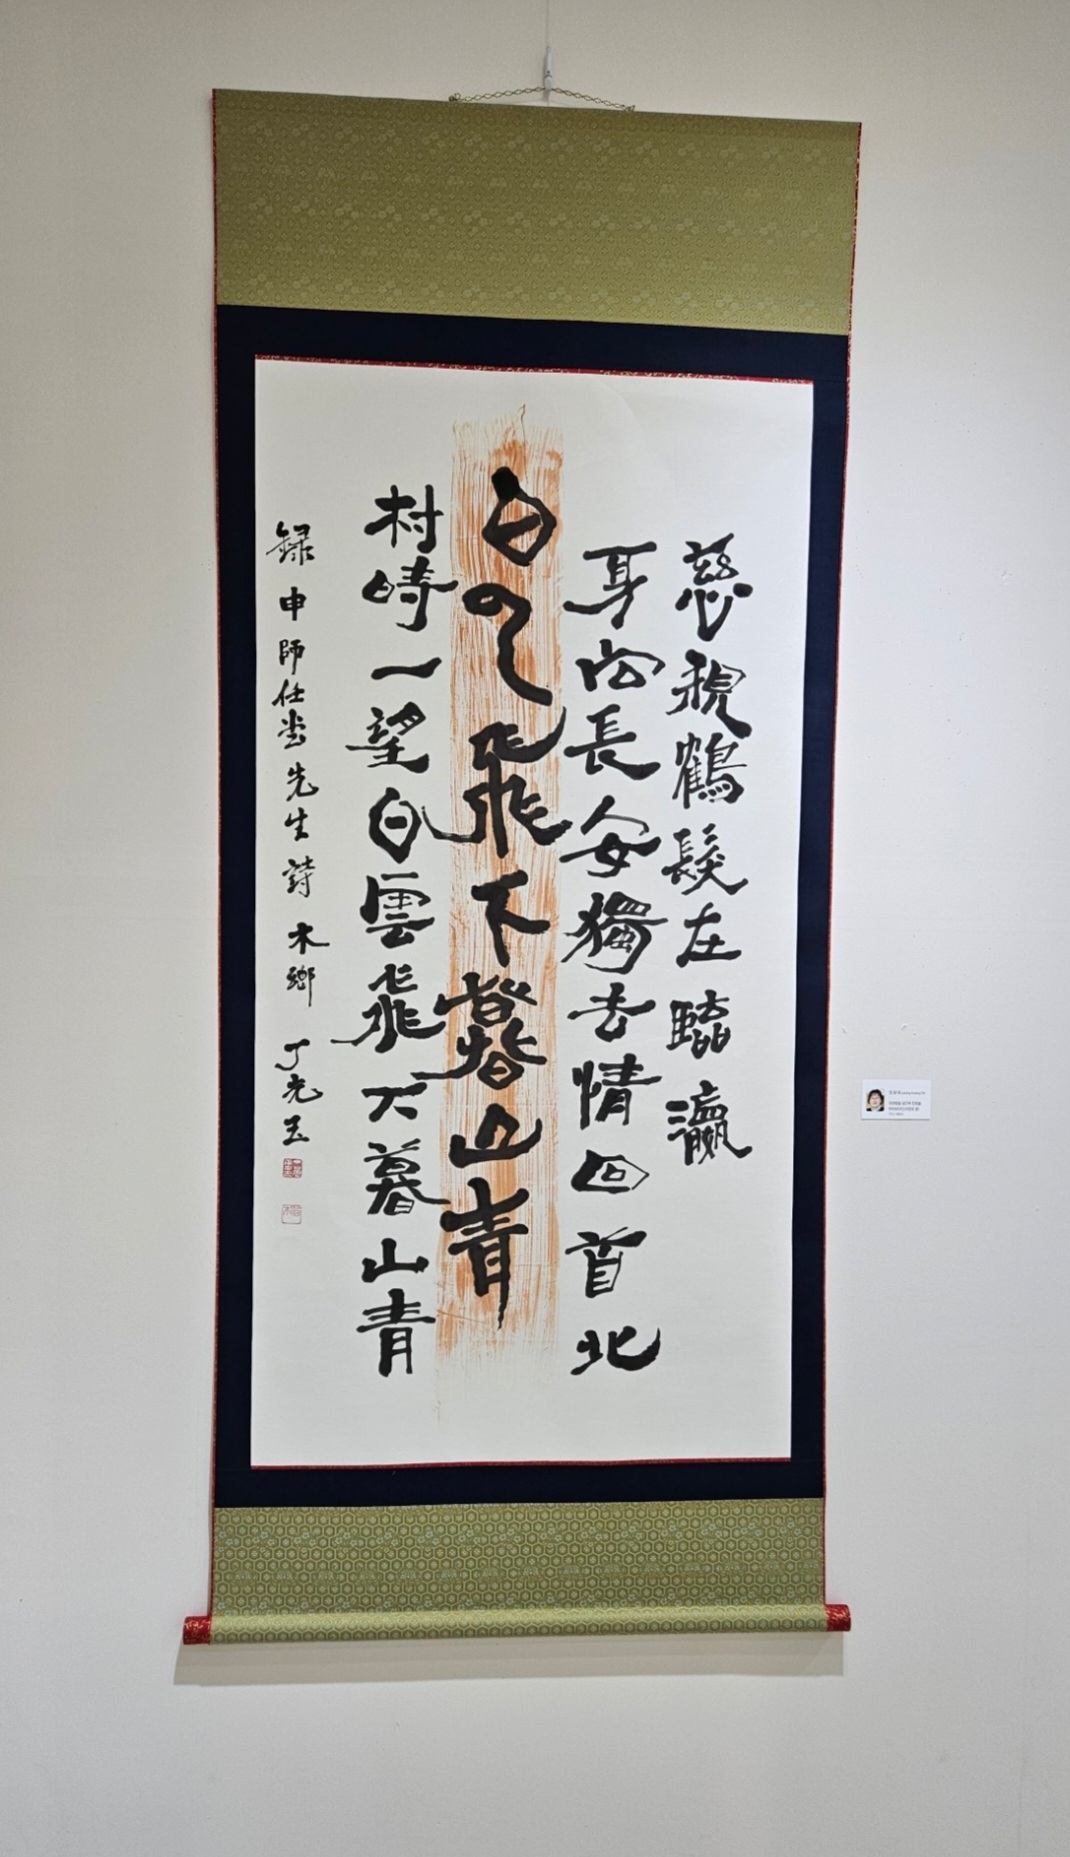 慈親鶴髮在臨瀛
身向長安獨去情回首北
白云飛下暮山青
村時一望白雲飛下暮山青
錄申師任堂先生詩 木鄉 丁光玉